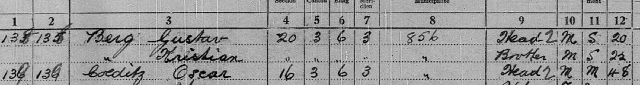 1 2 3 4 5 6 7 8 9 10 11 12
138 138 Berg Gustav 20 3 6 3 856 Head 2 M S 20
" Kristian " " " " " Brother M S 22
139 139 Colditz Oscar 16 3 6 3 " Head 2 M M 48